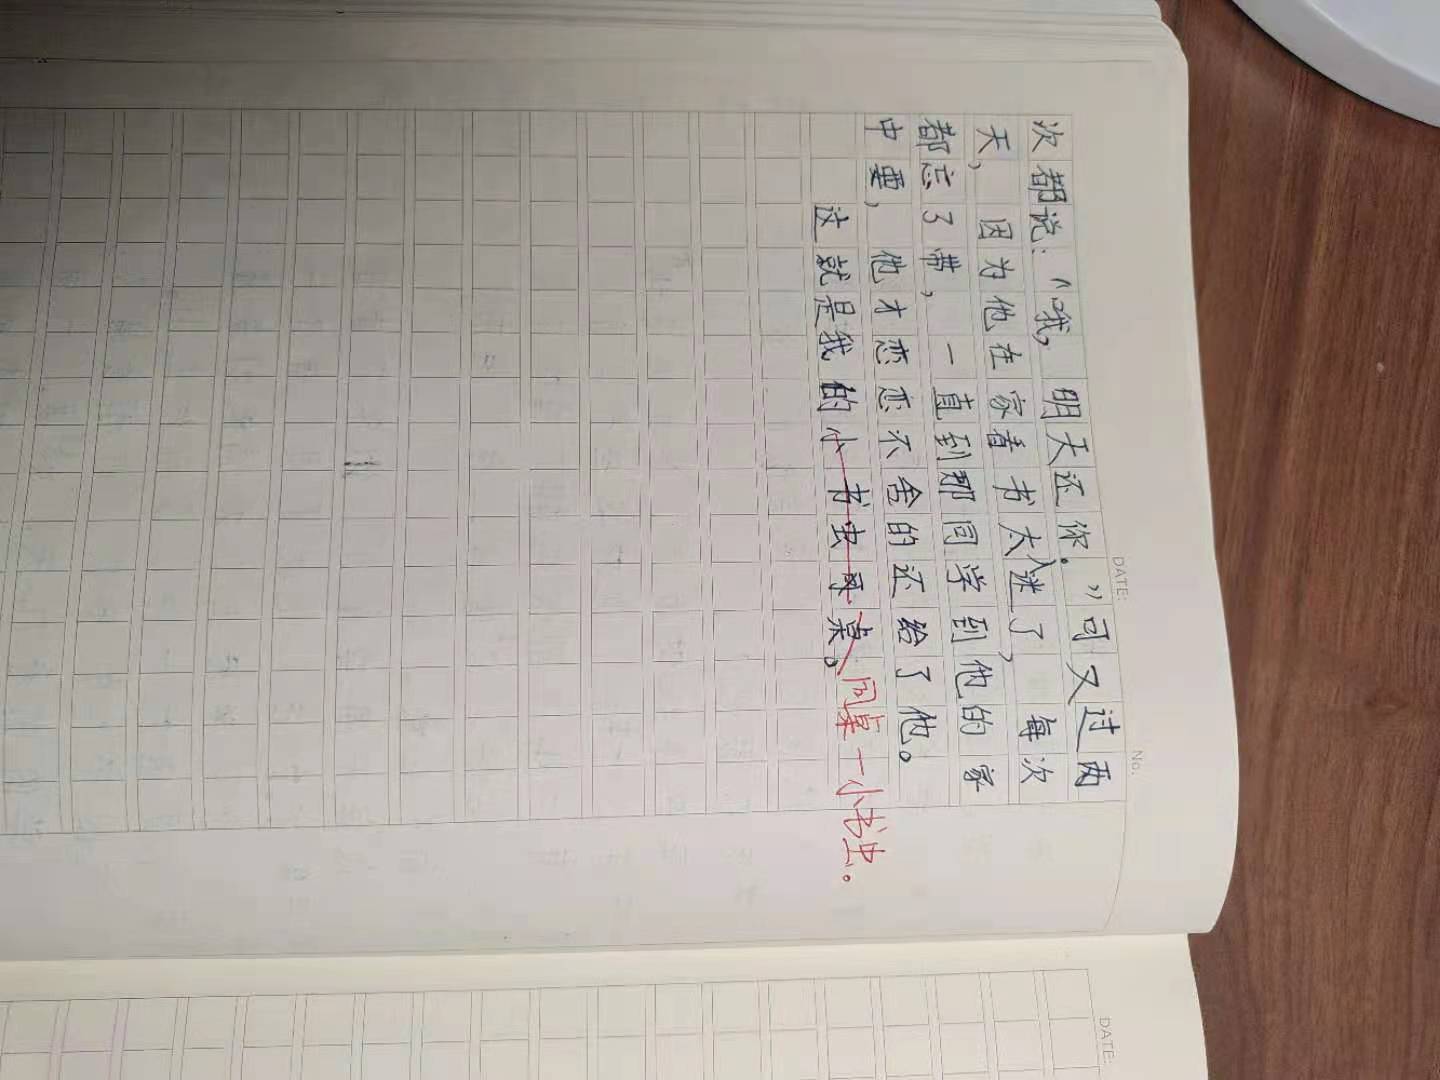 DATE:
No.
次都说:“哦,明天还你。”可又过两
天,因为他在家看书太入迷了,每次
都忘了带,一直到那同学到他的家
中要,他才恋恋不舍的还给了他。
这就是我的小书虫同桌。同桌一小书虫。
DATE: